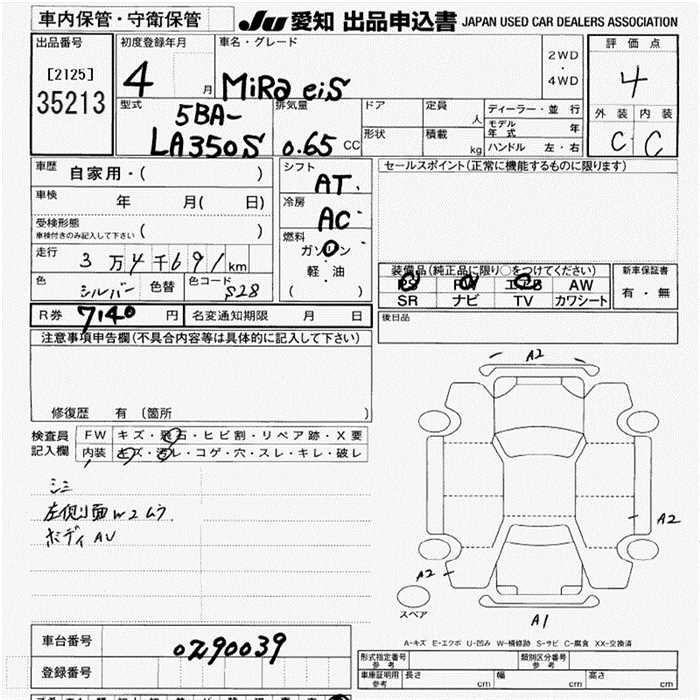 車内保管・守衛保管
JU 愛知 出品申込書 JAPAN USED CAR DEALERS ASSOCIATION
出品番号
[2125]
35213
初度登録年月
4 月
車名・グレード
MiRa eiS
2WD
・
4WD
評価点
4
外装 内装
C C
型式
5BA-
LA350S
排気量
0.65 CC
ドア
形状
定員
人
積載
kg
ディーラー・並行
モデル年式 年
ハンドル 左・右
車歴 自家用・( )
車検 年 月( 日)
受検形態
車検付きのみ記入して下さい ( )
走行 3万4千691km
色 シルバー 色替 色コード S28
シフト AT
冷房 AC
燃料
ガソリン
軽・油
( )
セールスポイント(正常に機能するものに限ります)
装備品(純正品に限り○をつけてください)
PS PW エアB AW
SR ナビ TV カワシート
新車保証書
有・無
R券 7140 円 名変通知期限 月 日
後日品
注意事項申告欄(不具合内容等は具体的に記入して下さい)
修復歴 有 〔箇所 〕
検査員
記入欄
FW キズ・飛石・ヒビ割・リペア跡・X要
内装 キズ・汚レ・コゲ・穴・スレ・キレ・破レ
シミ
左側り面W2ムラ
ボディAU
A2
A2
A2
A1
スペア
A-キズ E-エクボ U-凹み W-補修跡 S-サビ C-腐食 XX-交換済
車台番号 0290039
登録番号
形式指定番号
参考
類別区分番号
参考
車庫証明用
参考
長さ cm 幅 cm 高さ cm